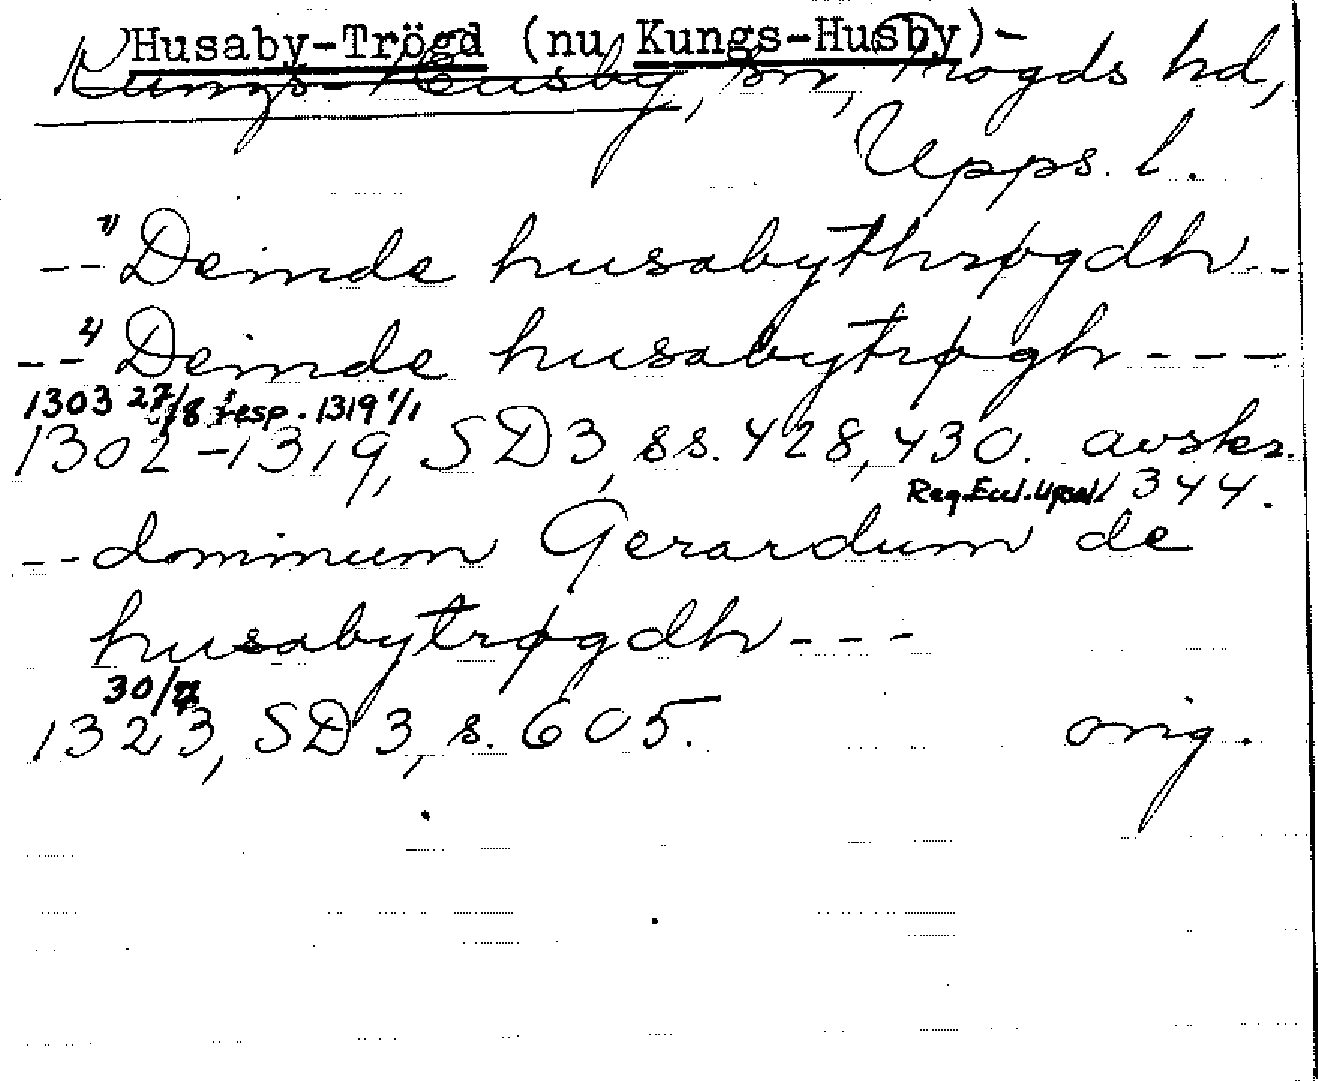 Husaby-Trögd (nu Kungs-Husby)-
Kungs-Husby, sn, Trögds hd,
Upps. l.
--1) Deinde husabythrøgdh--
--2) Deinde husabytrøgh---
1303 27/8 resp. 1319 1/1
1302-1319, SD 3, ss. 428, 430. avskr.
Reg. Eccl. Upsal. 1344.
--dominum Gerardum de
husabytrøgdh---
30/
1323, SD 3, s. 605. orig.